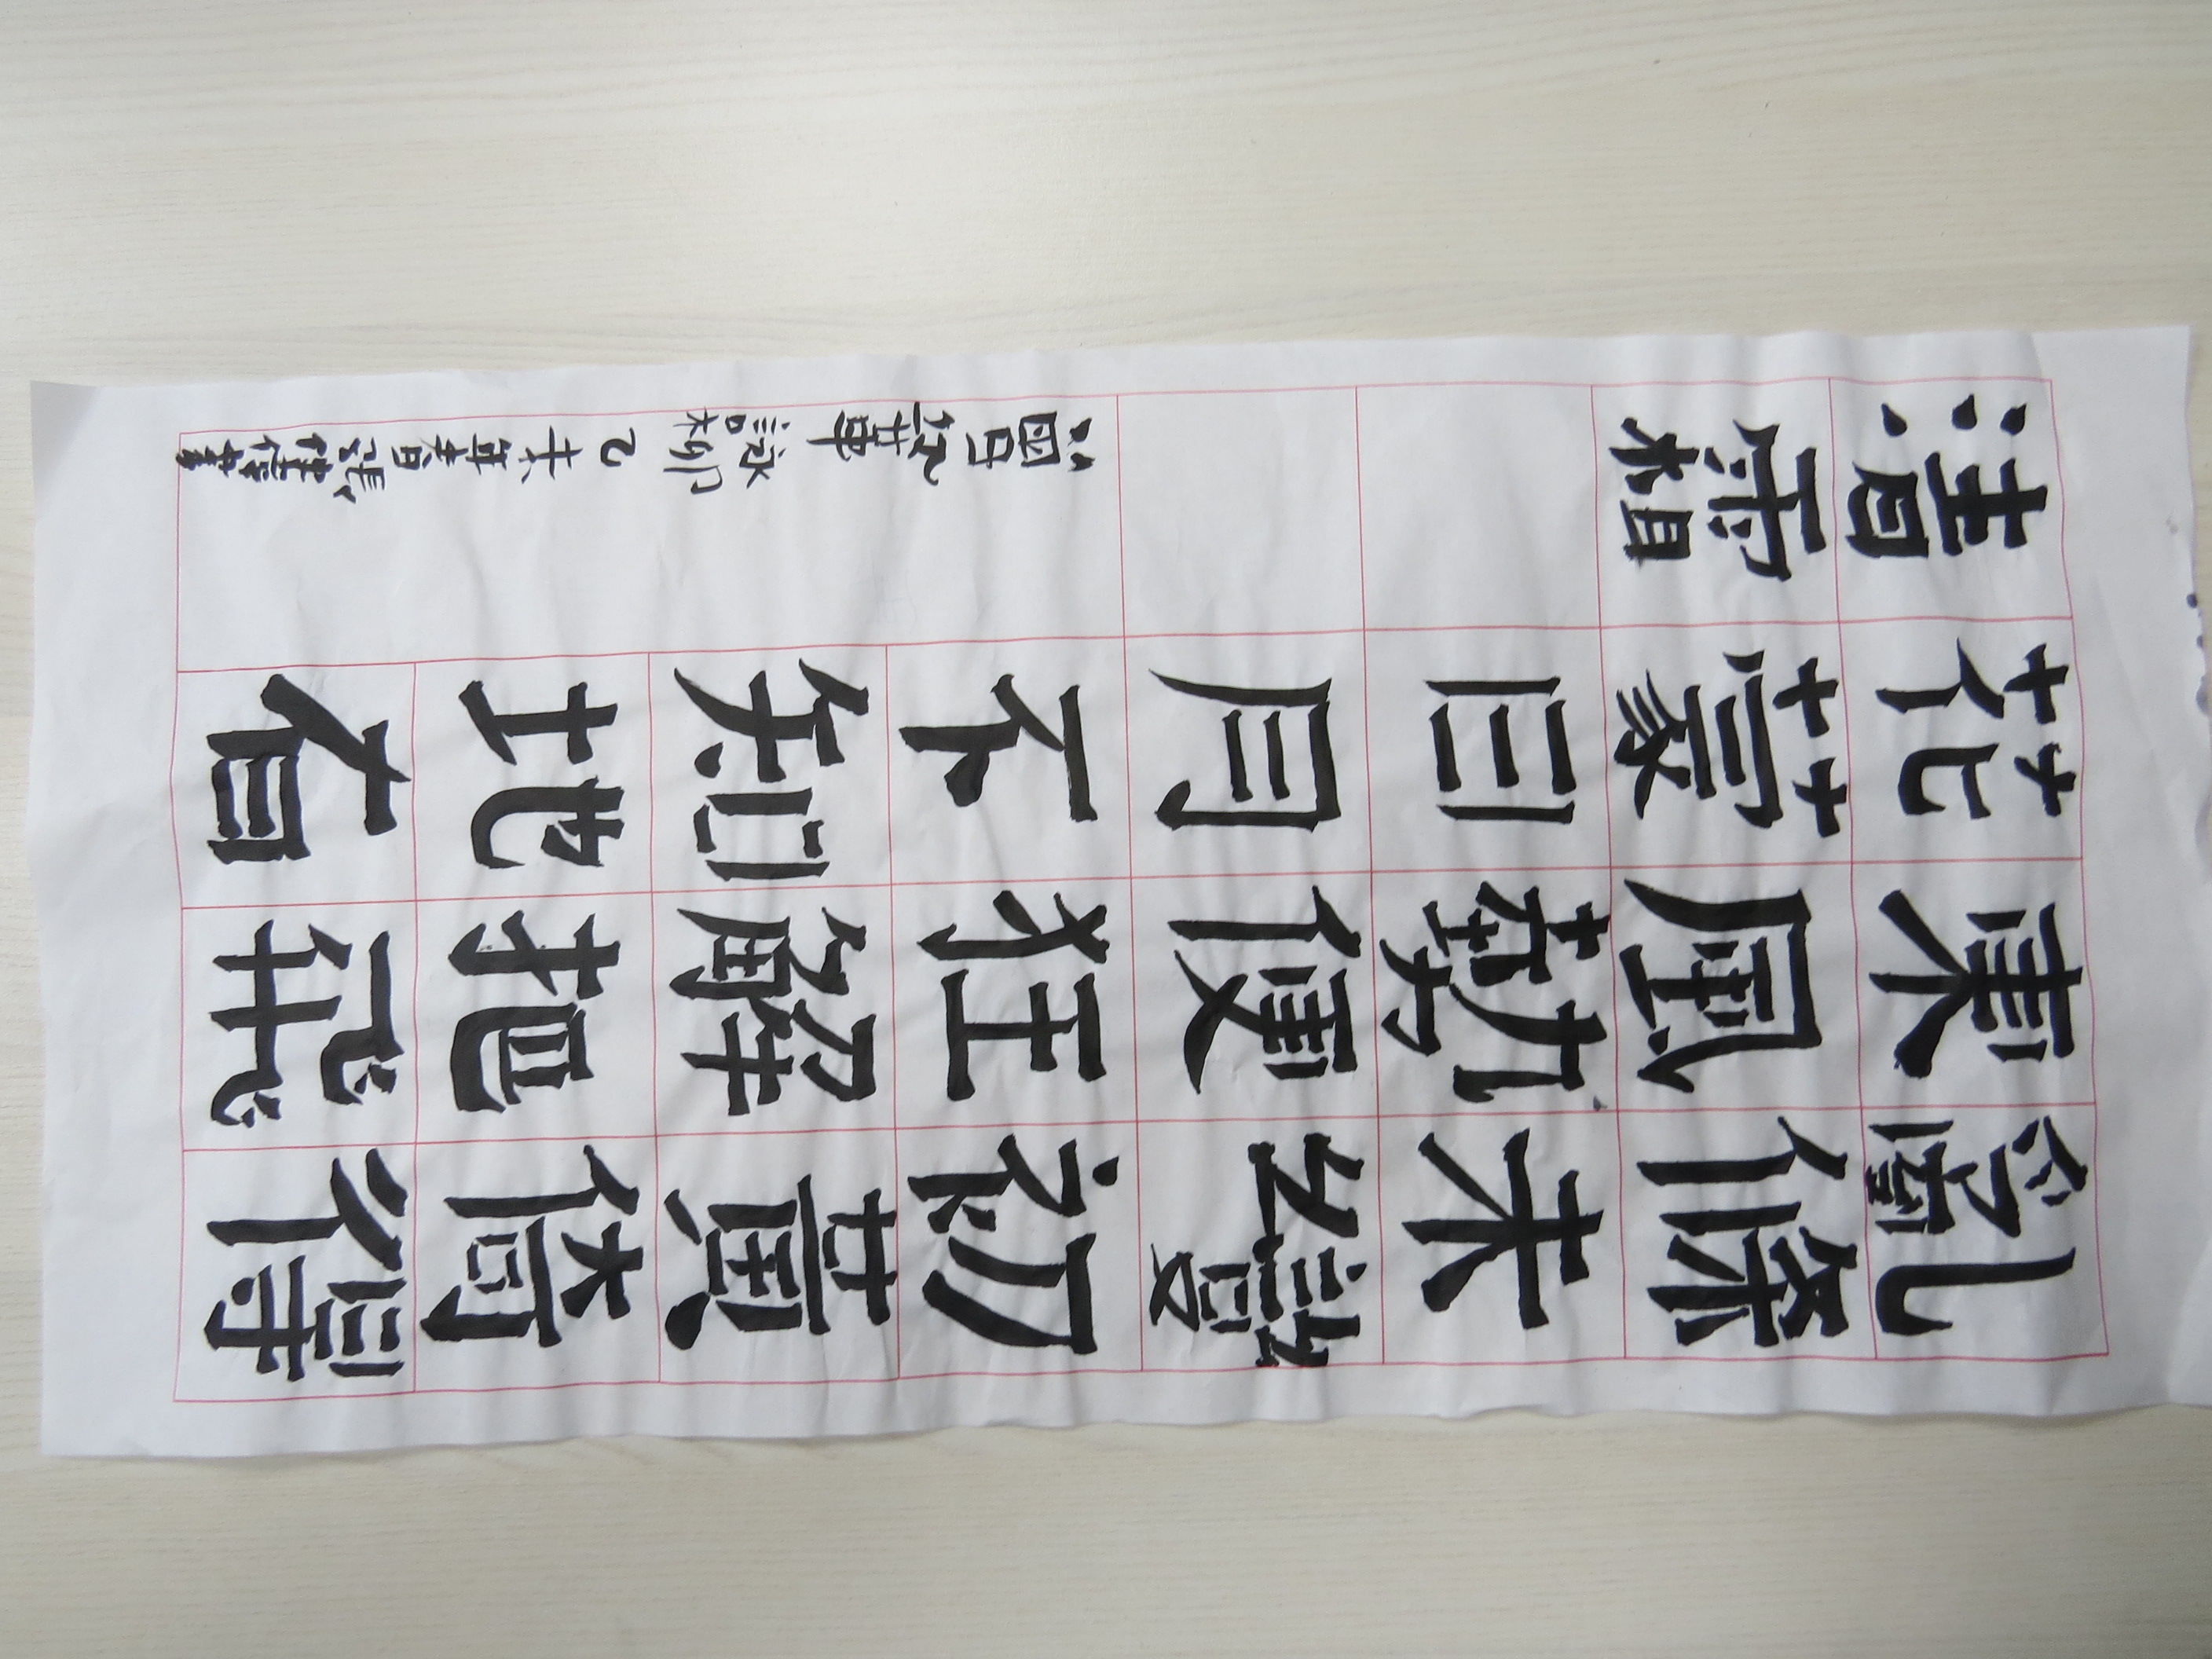 亂條未變初黃倚得
東風勢便狂解把飛
花蒙日月不知地有
清霜
曾鞏詠柳 乙未年春張書